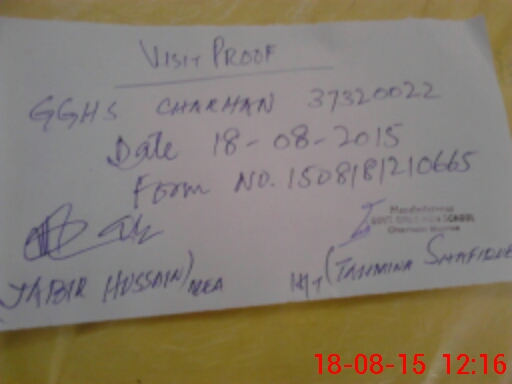 VISIT PROOF
GGHS CHARHAN 37320022
Date 18-08-2015
Form NO. 1508181210665
Headmistress
GOVT. GIRLS HIGH SCHOOL
JABIR HUSSAIN) MEA
H/T (TAHMINA SHAFIQUE
18-08-15 12:16